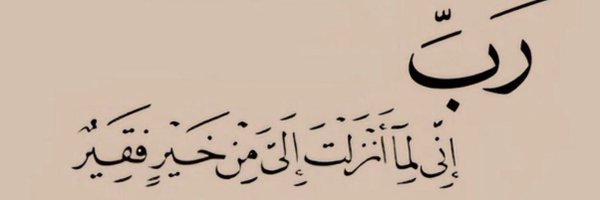 رَبَِّ
إِنِّى لِمَآ أَنْزَلْتَ إِلَىَّ مِنْ خَيْرٍ فَقِيرٌ